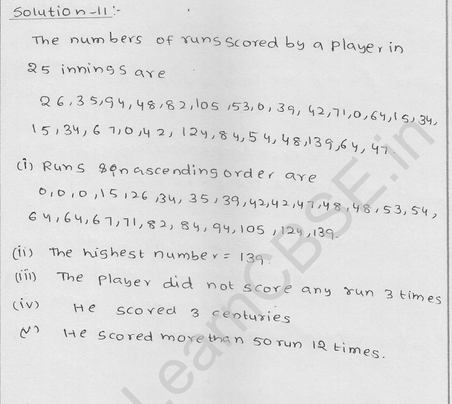 Solution-11:-
The numbers of runs scored by a player in
25 innings are
26,35,94,48,82,105,53,0,39,42,71,0,64,15,34,
15,34,67,0,42,124,84,54,48,139,64,47.
(i) Runs in ascending order are
0,0,0,15,26,34,35,39,42,42,47,48,48,53,54,
64,64,67,71,82,84,94,105,124,139.
(ii) The highest number = 139.
(iii) The player did not score any run 3 times
(iv) He scored 3 centuries
(v) He scored more than 50 run 12 times.
LearnCBSE.in